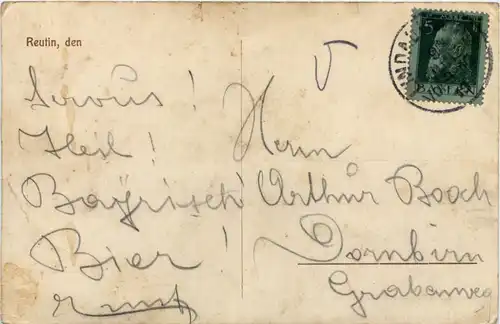 Reutin, den
Servus!
Heil!
Bayrisch
Bier!
Herrn
Arthur Booch
Dornbirn
Grabenweg
5